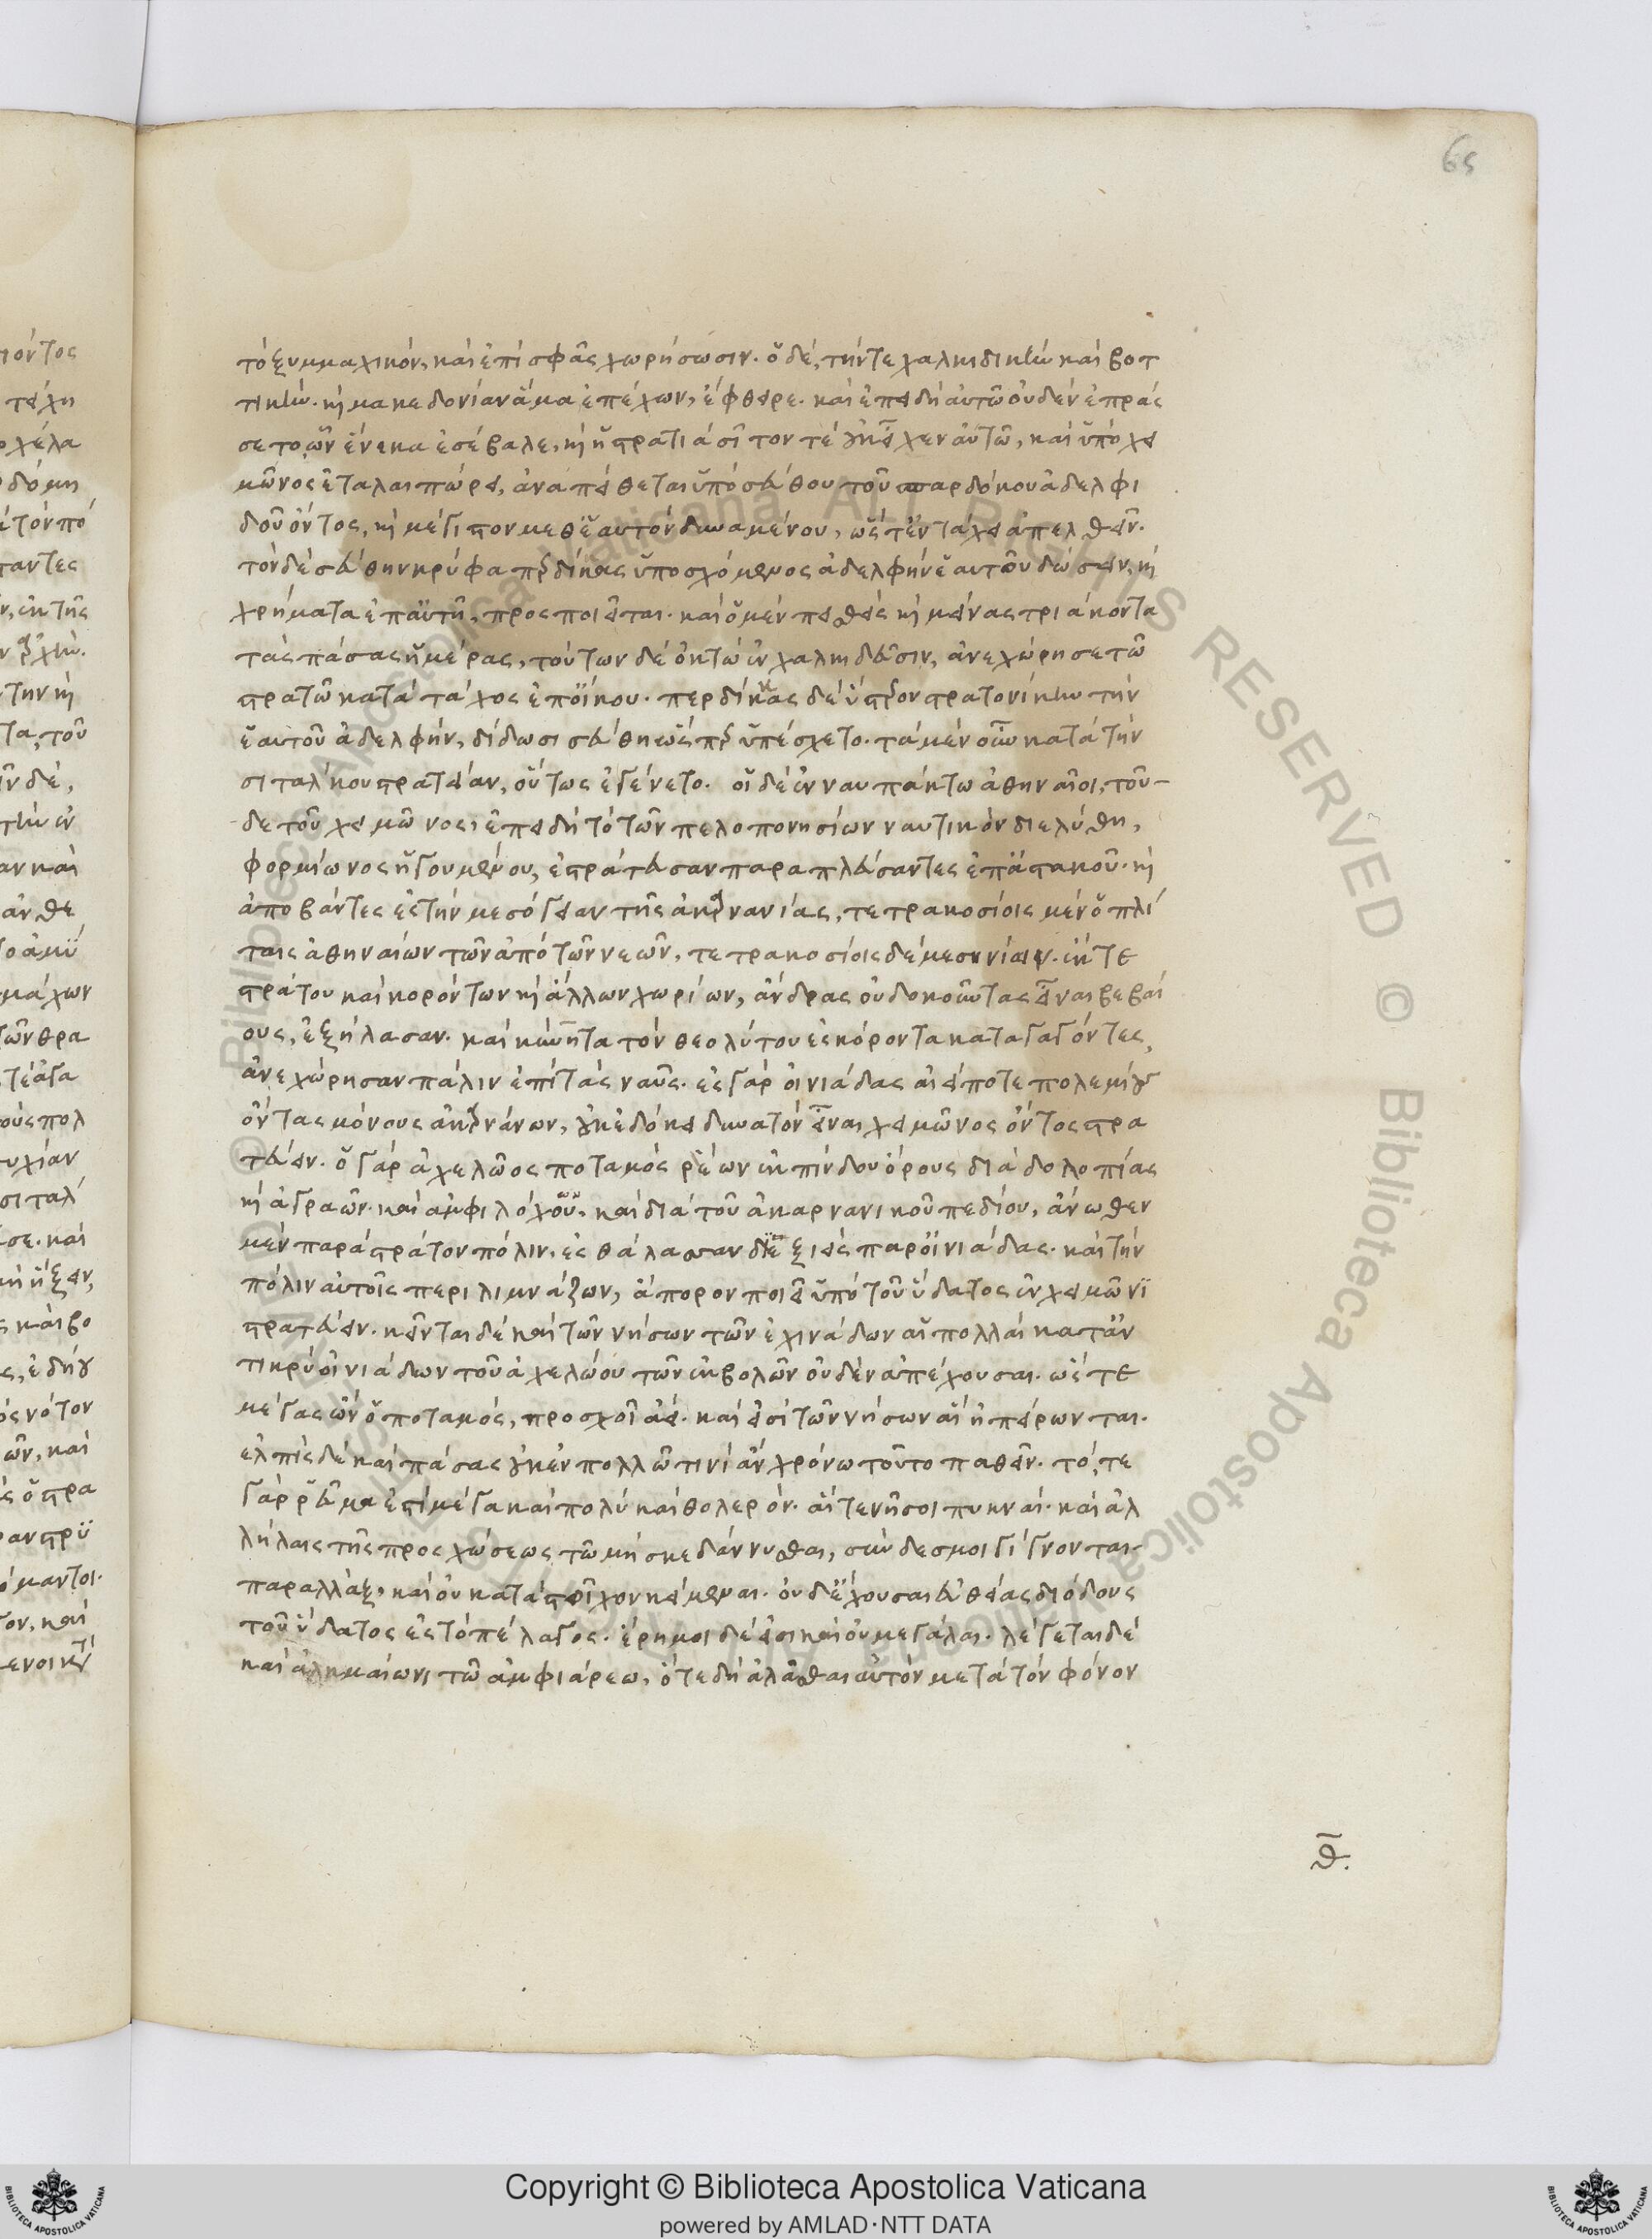 65
τὸ ξυμμαχικόν, καὶ ἐπὶ σφᾶς χωρήσωσιν. ὁ δὲ, τήν τε χαλκιδικὴν καὶ βοτ
τικὴν. κ̀ μακεδονίαν ἅμα ἐπέχων, ἔφθειρε. καὶ ἐπειδὴ αὐτῶ οὐδὲν ἐπράσ
σετο ὧν ἕνεκα ἐσέβαλε, κ̀ ἡ στρατιὰ σῖτον τὲ οὐκ εἶχεν αὐτῶ, καὶ ὑπὸ χει
μῶνος ἐταλαιπώρει, ἀναπείθεται ὑπὸ σεύθου τοῦ σπαρδόκου ἀδελφι
δοῦ ὄντος, κ̀ μέγιστον μεθ' ἑαυτὸν δυναμένου, ὥστ' ἐν τάχει ἀπελθεῖν.
τὸν δὲ σεύθην κρύφα περδίκκας ὑποσχόμενος ἀδελφὴν ἑαυτοῦ δώσειν, κ̀
χρήματα ἐπ' αὐτῆ, προσποιεῖται. καὶ ὁ μὲν πεισθεὶς κ̀ μείνας τριάκοντα
τὰς πάσας ἡμέρας, τούτων δὲ ὀκτὼ ἐν χαλκιδεῦσιν, ἀνεχώρησε τῶ
στρατῶ κατὰ τάχος ἐπ' οἴκου. περδίκκας δὲ ὕστερον στρατονίκην τὴν
ἑαυτοῦ ἀδελφὴν, δίδωσι σεύθη ὥσπερ ὑπέσχετο. τὰ μὲν οὖν κατὰ τὴν
σιτάλκου στρατείαν, οὕτως ἐγένετο. οἱ δὲ ἐν ναυπάκτω ἀθηναῖοι, τοῦ-
δε τοῦ χειμῶνος, ἐπειδὴ τὸ τῶν πελοπονησίων ναυτικὸν διελύθη,
φορμίωνος ἡγουμένου, ἐστράτευσαν παραπλεύσαντες ἐπ' ἀστακοῦ. κ̀
ἀποβάντες ἐς τὴν μεσόγειαν τῆς ἀκαρνανίας, τετρακοσίοις μὲν ὁπλί
ταις ἀθηναίων τῶν ἀπὸ τῶν νεῶν, τετρακοσίοις δὲ μεσηνίων. ἔκ τε
στράτου καὶ κορόντων κ̀ ἄλλων χωρίων, ἄνδρας οὐ δοκοῦντας εἶναι βεβαί
ους, ἐξήλασαν. καὶ κύνητα τὸν θεολύτου ἐς κόροντα καταγαγόντες,
ἀνεχώρησαν πάλιν ἐπὶ τὰς ναῦς. ἐς γὰρ οἰνιάδας αἰεί ποτε πολεμίους
ὄντας μόνους ἀκαρνάνων, οὐκ ἐδόκει δυνατὸν εἶναι χειμῶνος ὄντος στρα
τεύειν. ὁ γὰρ ἀχελῶος ποταμὸς ῥέων ἐκ πίνδου ὄρους διὰ δολοπίας
κ̀ ἀγραῶν. καὶ ἀμφιλόχων, καὶ διὰ τοῦ ἀκαρνανικοῦ πεδίου, ἄνωθεν
μὲν παρὰ στράτον πόλιν, ἐς θάλασσαν διεξιεὶς παρ' οἰνιάδας. καὶ τὴν
πόλιν αὐτοῖς περιλιμνάζων, ἄπορον ποιεῖ ὑπὸ τοῦ ὕδατος ἐν χειμῶνι
στρατεύειν. κεῖνται δὲ καὶ τῶν νήσων τῶν ἐχινάδων αἱ πολλαὶ καταν
τικρὺ οἰνιάδων τοῦ ἀχελώου τῶν ἐκβολῶν οὐδὲν ἀπέχουσαι. ὥστε
μέγας ὢν ὁ ποταμὸς, προσχοῖ ἀεί. καὶ εἰσὶ τῶν νήσων αἳ ἠπείρωνται.
ἐλπὶς δὲ καὶ πάσας οὐκ ἐν πολλῶ τινὶ ἂν χρόνω τοῦτο παθεῖν. τό, τε
γὰρ ῥεῦμα ἐστὶ μέγα καὶ πολὺ καὶ θολερόν. αἵ τε νῆσοι πυκναί. καὶ ἀλ
λήλαις τῆς προσχώσεως τῶ μὴ σκεδάννυσθαι, σύνδεσμοι γίγνονται.
παραλλὰξ, καὶ οὐ κατὰ στοῖχον κείμεναι. οὐδ' ἔχουσαι εὐθείας διόδους
τοῦ ὕδατος ἐς τὸ πέλαγος. ἔρημοι δέ εἰσι καὶ οὐ μεγάλαι. λέγεται δὲ
καὶ ἀλκμαίωνι τῶ ἀμφιάρεω, ὅτε δὴ ἀλᾶσθαι αὐτὸν μετὰ τὸν φόνον
θ̄.
Copyright © Biblioteca Apostolica Vaticana
powered by AMLAD·NTT DATA